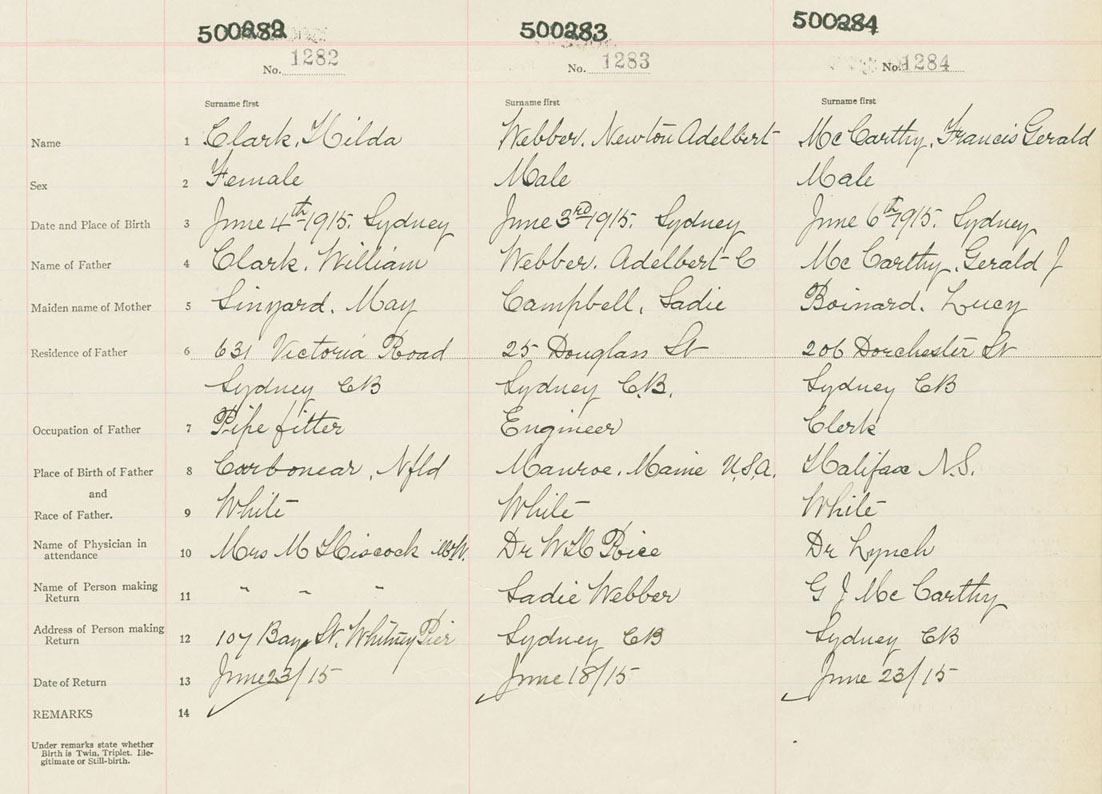 500282 500283 500284
No. 1282 No. 1283 No. 1284
Surname first Surname first Surname first
Name 1 Clark, Hilda Webber, Newton Adelbert McCarthy, Francis Gerald
Sex 2 Female Male Male
Date and Place of Birth 3 June 4th 1915. Sydney June 3rd 1915. Sydney June 6th 1915. Sydney
Name of Father 4 Clark, William Webber, Adelbert C McCarthy, Gerald J
Maiden name of Mother 5 Sinyard, May Campbell, Sadie Boinard, Lucy
Residence of Father 6 631 Victoria Road 25 Douglass St 206 Dorchester St
Sydney CB Sydney C.B. Sydney CB
Occupation of Father 7 Pipe fitter Engineer Clerk
Place of Birth of Father 8 Carbonear, Nfld Manroe, Maine U.S.A. Halifax N.S.
and
Race of Father. 9 White White White
Name of Physician in
attendance 10 Mrs M Hiscock MW. Dr W H Rice Dr Lynch
Name of Person making
Return 11 " " " Sadie Webber G J McCarthy
Address of Person making
Return 12 107 Bay St. Whitney Pier Sydney CB Sydney CB
Date of Return 13 June 23/15 June 18/15 June 23/15
REMARKS 14
Under remarks state whether
Birth is Twin, Triplet, Ille-
gitimate or Still-birth.